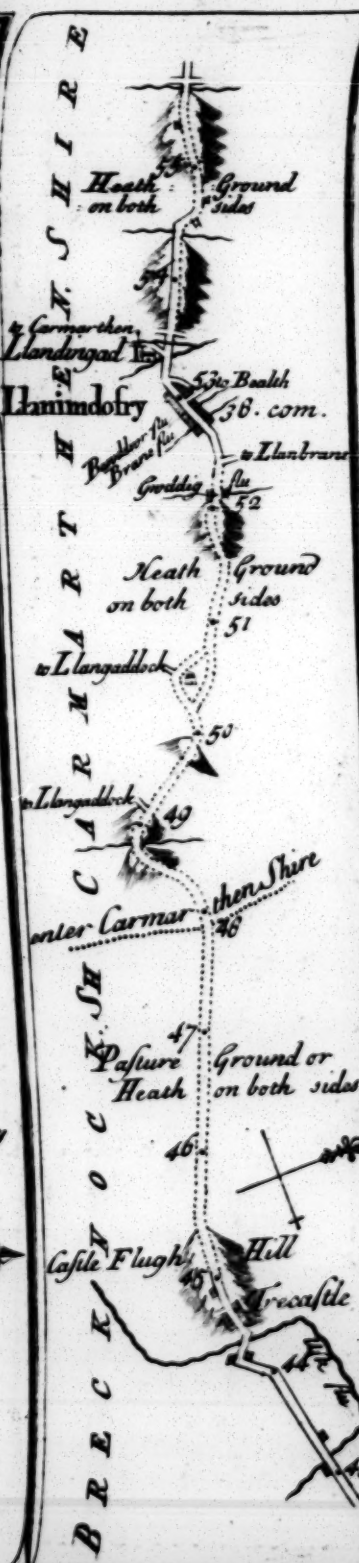 CARMARTHEN.SHIRE
55
Heath Ground
on both sides
54
to Carmarthen
Llandingad
53 to Bealth
Llanimdofry
38. com.
Brane flu
to Llanbrane
Groddig flu
52
Heath Ground
on both sides
51
to Llangaddock
50
to Llangaddock
49
enter Carmarthen Shire
48
47
Paſture Ground or
Heath on both sides
46
Caſtle Flugh Hill
45
Trecaſtle
44
flu
BRECKNOCK.SH